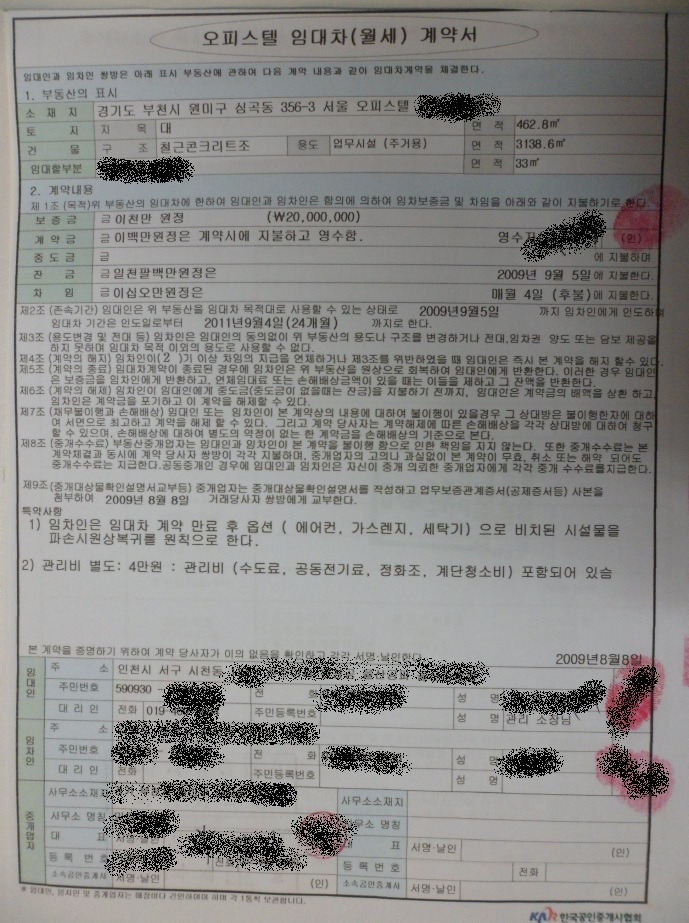 오피스텔 임대차(월세) 계약서
임대인과 임차인 쌍방은 아래 표시 부동산에 관하여 다음 계약 내용과 같이 임대차계약을 체결한다.
1. 부동산의 표시
소 재 지 경기도 부천시 원미구 심곡동 356-3 서울 오피스텔
토 지 지 목 대 면 적 462.8㎡
건 물 구 조 철근콘크리트조 용도 업무시설 (주거용) 면 적 3138.6㎡
임대할부분 면 적 33㎡
2. 계약내용
제 1조 (목적)위 부동산의 임대차에 한하여 임대인과 임차인은 합의에 의하여 임차보증금 및 차임을 아래와 같이 지불하기로 한다.
보 증 금 금 이천만 원정 (₩20,000,000)
계 약 금 금 이백만원정은 계약시에 지불하고 영수함. 영수자 (인)
중 도 금 금 에 지불하며
잔 금 금 일천팔백만원정은 2009년 9월 5일에 지불한다.
차 임 금 이십오만원정은 매월 4일 (후불)에 지불한다.
제2조 (존속기간) 임대인은 위 부동산을 임대차 목적대로 사용할 수 있는 상태로 2009년9월5일 까지 임차인에게 인도하며
임대차 기간은 인도일로부터 2011년9월4일(24개월) 까지로 한다.
제3조 (용도변경 및 전대 등) 임차인은 임대인의 동의없이 위 부동산의 용도나 구조를 변경하거나 전대,임차권 양도 또는 담보 제공을
하지 못하며 임대차 목적 이외의 용도로 사용할 수 없다.
제4조 (계약의 해지) 임차인이(2)기 이상 차임의 지급을 연체하거나 제3조를 위반하였을 때 임대인은 즉시 본 계약을 해지 할수 있다.
제5조 (계약의 종료) 임대차계약이 종료된 경우에 임차인은 위 부동산을 원상으로 회복하여 임대인에게 반환한다. 이러한 경우 임대인
은 보증금을 임차인에게 반환하고, 연체임대료 또는 손해배상금액이 있을 때는 이들을 제하고 그 잔액을 반환한다.
제6조 (계약의 해제) 임차인이 임대인에게 중도금(중도금이 없을때는 잔금)을 지불하기 전까지, 임대인은 계약금의 배액을 상환 하고,
임차인은 계약금을 포기하고 이 계약을 해제할 수 있다.
제7조 (채무불이행과 손해배상) 임대인 또는 임차인이 본 계약상의 내용에 대하여 불이행이 있을경우 그 상대방은 불이행한자에 대하
여 서면으로 최고하고 계약을 해제 할 수 있다. 그리고 계약 당사자는 계약해제에 따른 손해배상을 각각 상대방에 대하여 청구
할 수 있으며, 손해배상에 대하여 별도의 약정이 없는 한 계약금을 손해배상의 기준으로 본다.
제8조 (중개수수료) 부동산중개업자는 임대인과 임차인이 본 계약을 불이행 함으로 인한 책임을 지지 않는다. 또한 중개수수료는 본
계약체결과 동시에 계약 당사자 쌍방이 각각 지불하며, 중개업자의 고의나 과실없이 본 계약이 무효, 취소 또는 해약 되어도
중개수수료는 지급한다.공동중개인 경우에 임대인과 임차인은 자신이 중개 의뢰한 중개업자에게 각각 중개 수수료를지급한다.
제9조 (중개대상물확인설명서교부등) 중개업자는 중개대상물확인설명서를 작성하고 업무보증관계증서(공제증서등) 사본을
첨부하여 2009년 8월 8일 거래당사자 쌍방에게 교부한다.
특약사항
1) 임차인은 임대차 계약 만료 후 옵션 ( 에어컨, 가스렌지, 세탁기) 으로 비치된 시설물을
파손시원상복귀를 원칙으로 한다.
2) 관리비 별도: 4만원 : 관리비 (수도료, 공동전기료, 정화조, 계단청소비) 포함되어 있슴
본 계약을 증명하기 위하여 계약 당사자가 이의 없음을 확인하고 각각 서명·날인한다. 2009년8월8일
임대인 주 소 인천시 서구 시천동
주민번호 590930 전 화 성 명
대 리 인 전화 019 주민등록번호 성 명 관리 소장님
임차인 주 소
주민번호 전 화 성 명
대 리 인 전화 주민등록번호 성 명
중개업자 사무소소재지 사무소소재지
사무소 명칭 사무소 명칭
대 표 대 표 서명·날인 (인)
등 록 번 호 등 록 번 호 전화
소속공인중개사 서명·날인 (인) 소속공인중개사 서명·날인 (인)
* 임대인, 임차인 및 중개업자는 매장마다 간인하여야 하며 각 1통씩 보관합니다.
KAR 한국공인중개사협회